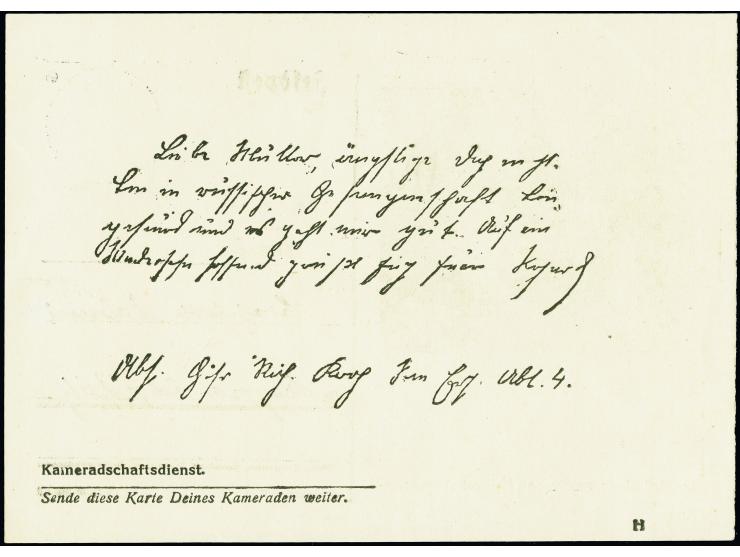 Liebe Mutter, ängstige Dich nicht.
bin in russischer Gefangenschaft bin
gesund und es geht mir gut. Auf ein
Wiedersehn hoffend grüßt Euch Euer
Abs. Gefr. Rich. Koch Abt. 4.
Kameradschaftsdienst.
Sende diese Karte Deines Kameraden weiter.
H